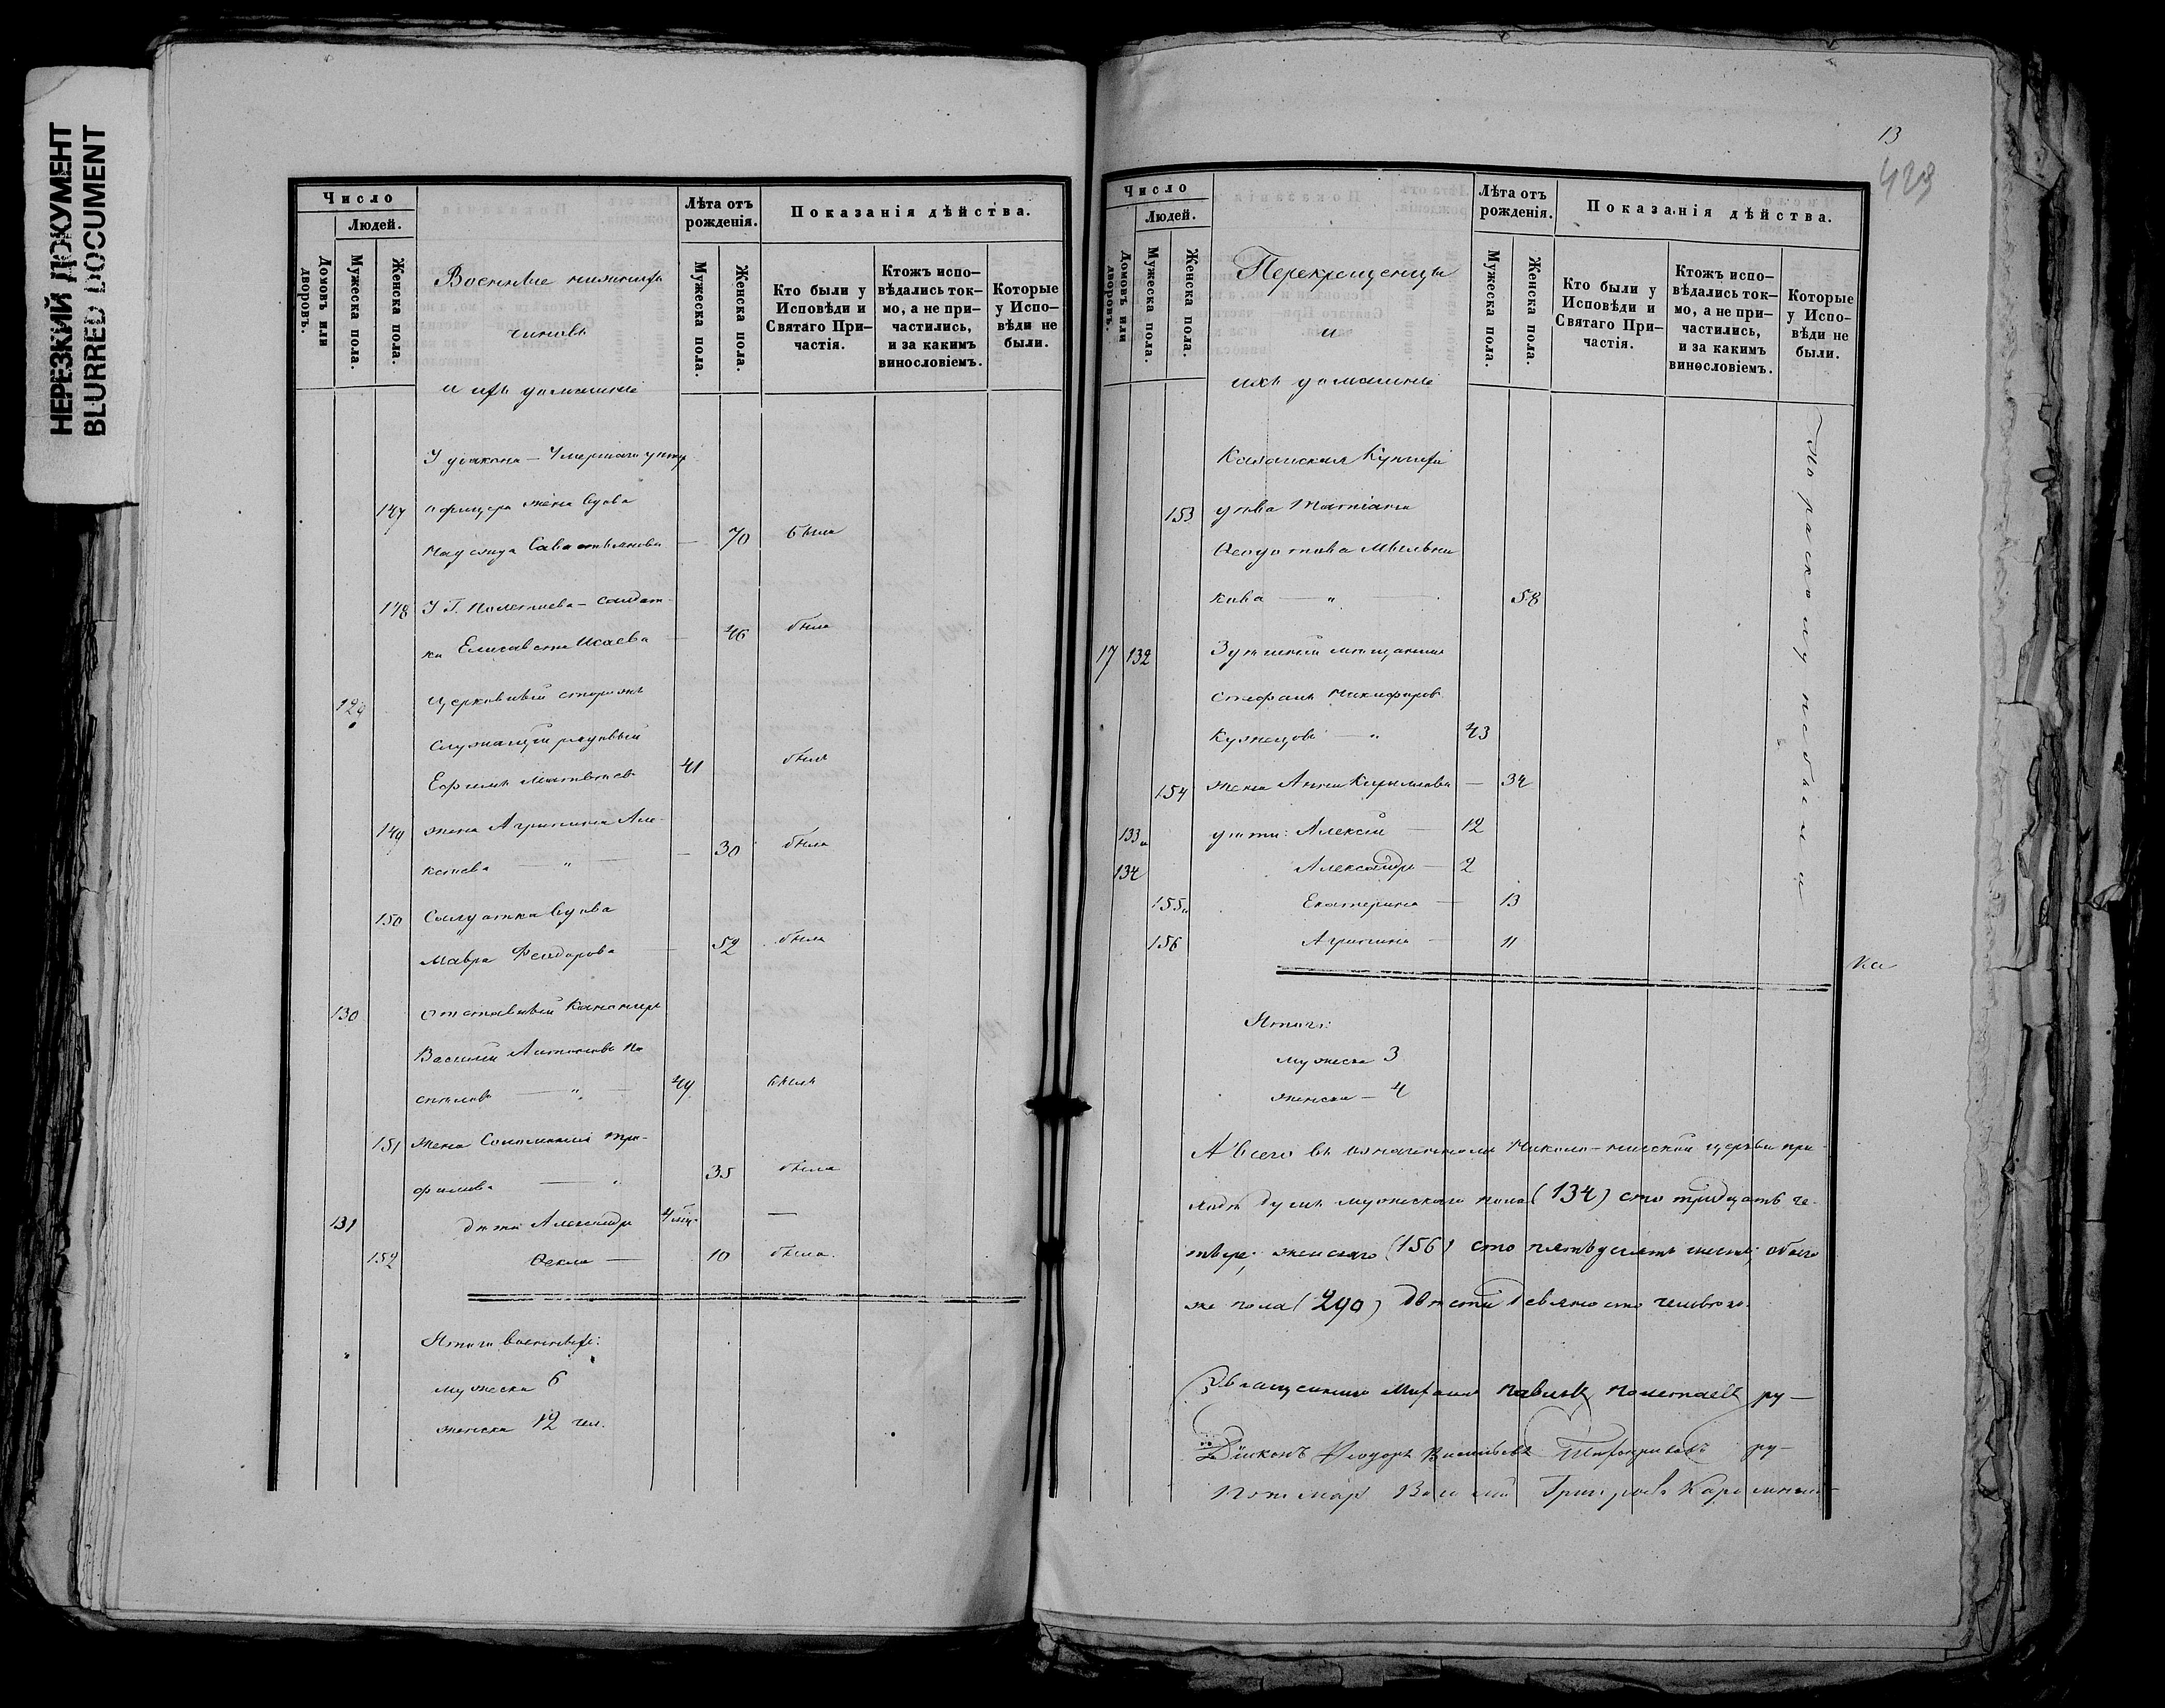 НЕРЕЗКИЙ ДОКУМЕНТ
BLURRED DOCUMENT
Число
Людей.
Домовъ или дворовъ.
Мужеска пола.
Женска пола.
Военные нижнихъ
чиновъ
и ихъ домашніе
Лѣта отъ рожденія.
Мужеска пола.
Женска пола.
Показанія дѣйства.
Кто были у Исповѣди и Святаго При-
частія.
Ктожъ испо-
вѣдались ток-
мо, а не при-
частились,
и за какимъ
винословіемъ.
Которые
у Испо-
вѣди не
были.
У діакона – Умершаго унтер
147 офицера жена вдова
Надежда Савастьянова — 70 была
148 У Г. Полетаева – солдат-
ка Елисавета Исаева — 46 была
129 Церковный сторожъ
служащій рядовый
Ефимъ Матвѣевъ 41 былъ
149 жена Агрипина Але-
ксѣева — " — — 30 была
150 Солдатка вдова
Мавра Феодорова — 52 была
130 Отставный Канониръ
Василій Антоновъ По
— " — 49 былъ
151 Жена Соломонія Три-
фонова — " 35 была
131 дѣти Александръ 4 мѣс. —
152 Ѳекла — 10 была.
Итого военныхъ:
мужеска 6
женска 12 чел.
13
423
Число
Людей.
Домовъ или дворовъ.
Мужеска пола.
Женска пола.
Перекрещенцы
и
ихъ домашніе
Лѣта отъ рожденія.
Мужеска пола.
Женска пола.
Показанія дѣйства.
Кто были у
Исповѣди и
Святаго При-
частія.
Ктожъ испо-
вѣдались ток-
мо, а не при-
частились,
и за какимъ
винословіемъ.
Которые
у Испо-
вѣди не
были.
Казанская Купчиха
153 вдова Татіана
Ѳеодотова Мельни
кова — " — 58
17 132 мѣщанинъ
Стефанъ Никифоровъ
Кузнецовъ — " 43
154 жена Анна Кирилова — 34
133 и дѣти: Алексѣй — 12
134 Александръ — 2
155 и Екатерина — 13
156 Агрипина — 11
По расколу не были
Ка
Итого:
мужеска 3
женска – 4
А всего въ означенномъ Николо-нисской церкви при-
ходѣ душъ мужескаго пола (134) сто тридцать че-
тыре; женскаго (156) сто пятьдесятъ шесть; обоего
же пола (290) двѣсти девяносто человѣкъ.
Священникъ Михаилъ Павловъ Полетаевъ ру—
Діаконъ Ѳеодоръ Васильевъ ру—
Пономарь Василій Григорьевъ